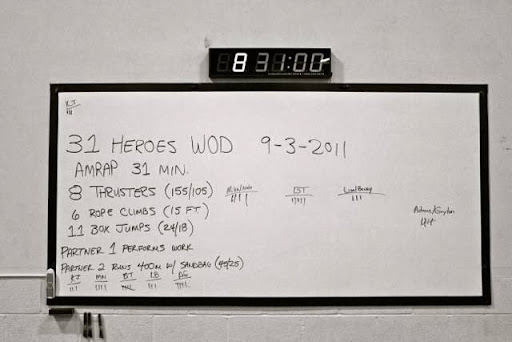 8 31:00
KJ
31 HEROES WOD 9-3-2011
AMRAP 31 MIN.
8 THRUSTERS (155/105)
6 ROPE CLIMBS (15 FT)
11 BOX JUMPS (24/18)
PARTNER 1 PERFORMS WORK
PARTNER 2 RUNS 400M W/ SANDBAG (45/25)